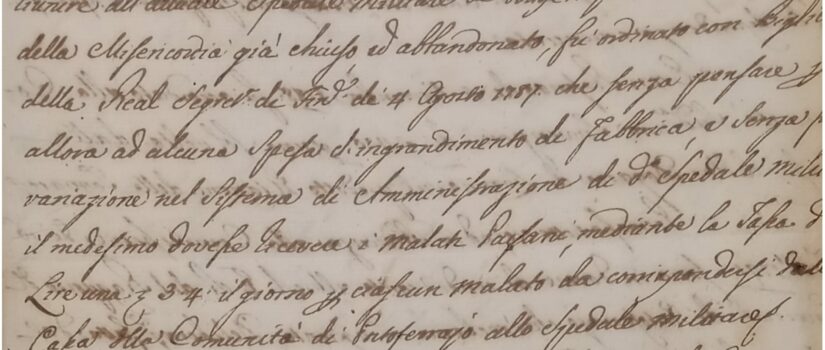 all'attuale Spedale Militare
della Misericordia già chiuso, ed abbandonato, fù ordinato con Bigli
della Real Segret.ª di Fin.ᵉ de 4 Agosto 1787. che senza pensare p
allora ad alcuna spesa d'ingrandimento di Fabbrica, e senza
variazione nel Sistema di Amministrazione di d.º Spedale Mili
il medesimo dovesse ricevere i Malati Paesani, mediante la Tassa d
Lire una 3 4 il giorno p ciascun malato da corrispondersi dalla
Cassa della Comunità di Portoferrajo allo Spedale militare